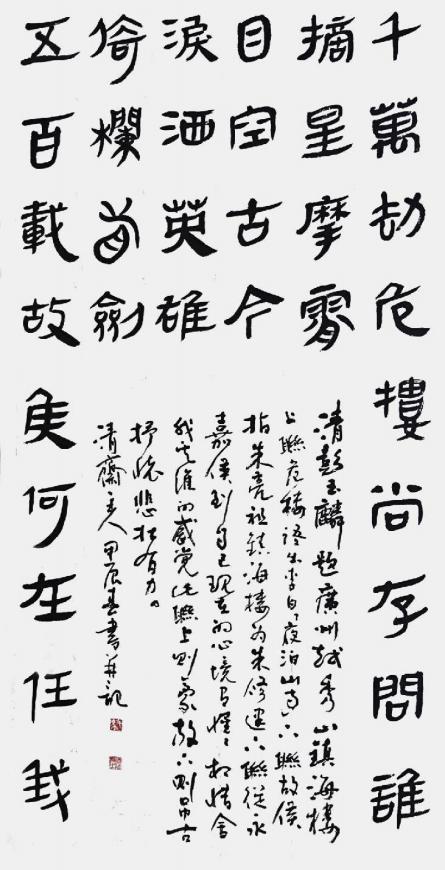 千萬劫危樓尚存問誰
摘星摩霄
目空古今
五百載故侯何在任我
倚欄看劍
淚洒英雄
清彭玉麟題廣州越秀山鎮海樓
上聯危樓語出李白夜泊山寺下聯故侯
指朱亮祖鎮海樓為朱修建下聯從永
嘉侯到自己現在的心境有惺惺相惜舍
我其誰的感覺此聯上則豪放下則吊古
抒懷悲壯有力。
清齋主人甲辰春書并記